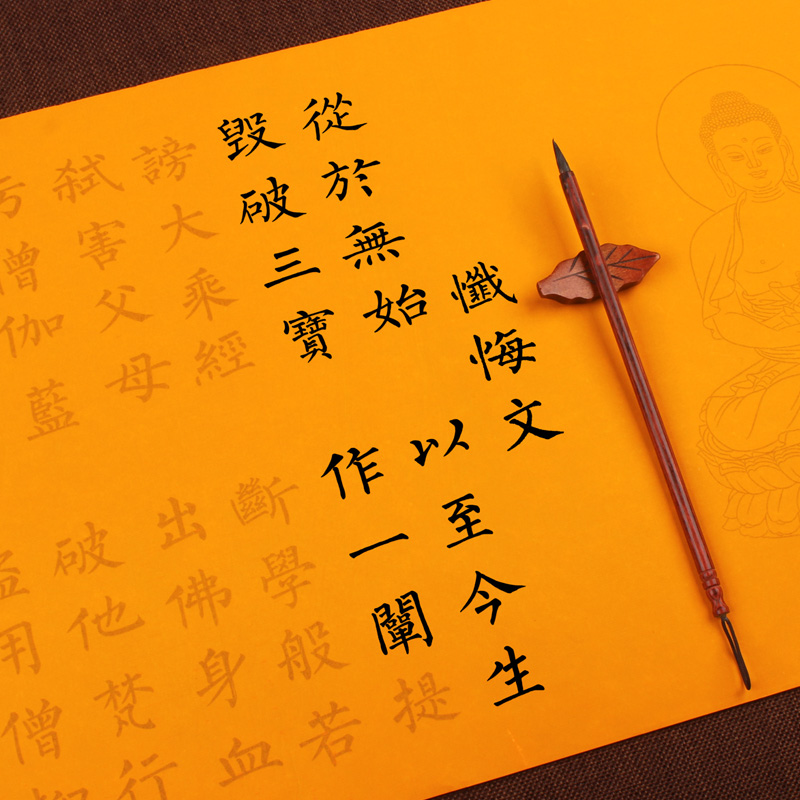 懺悔文
從於無始 以至今生
毀破三寶 作一闡提
謗大乘經 斷學般若
弑害父母 出佛身血
僧伽藍 破他梵行
用僧